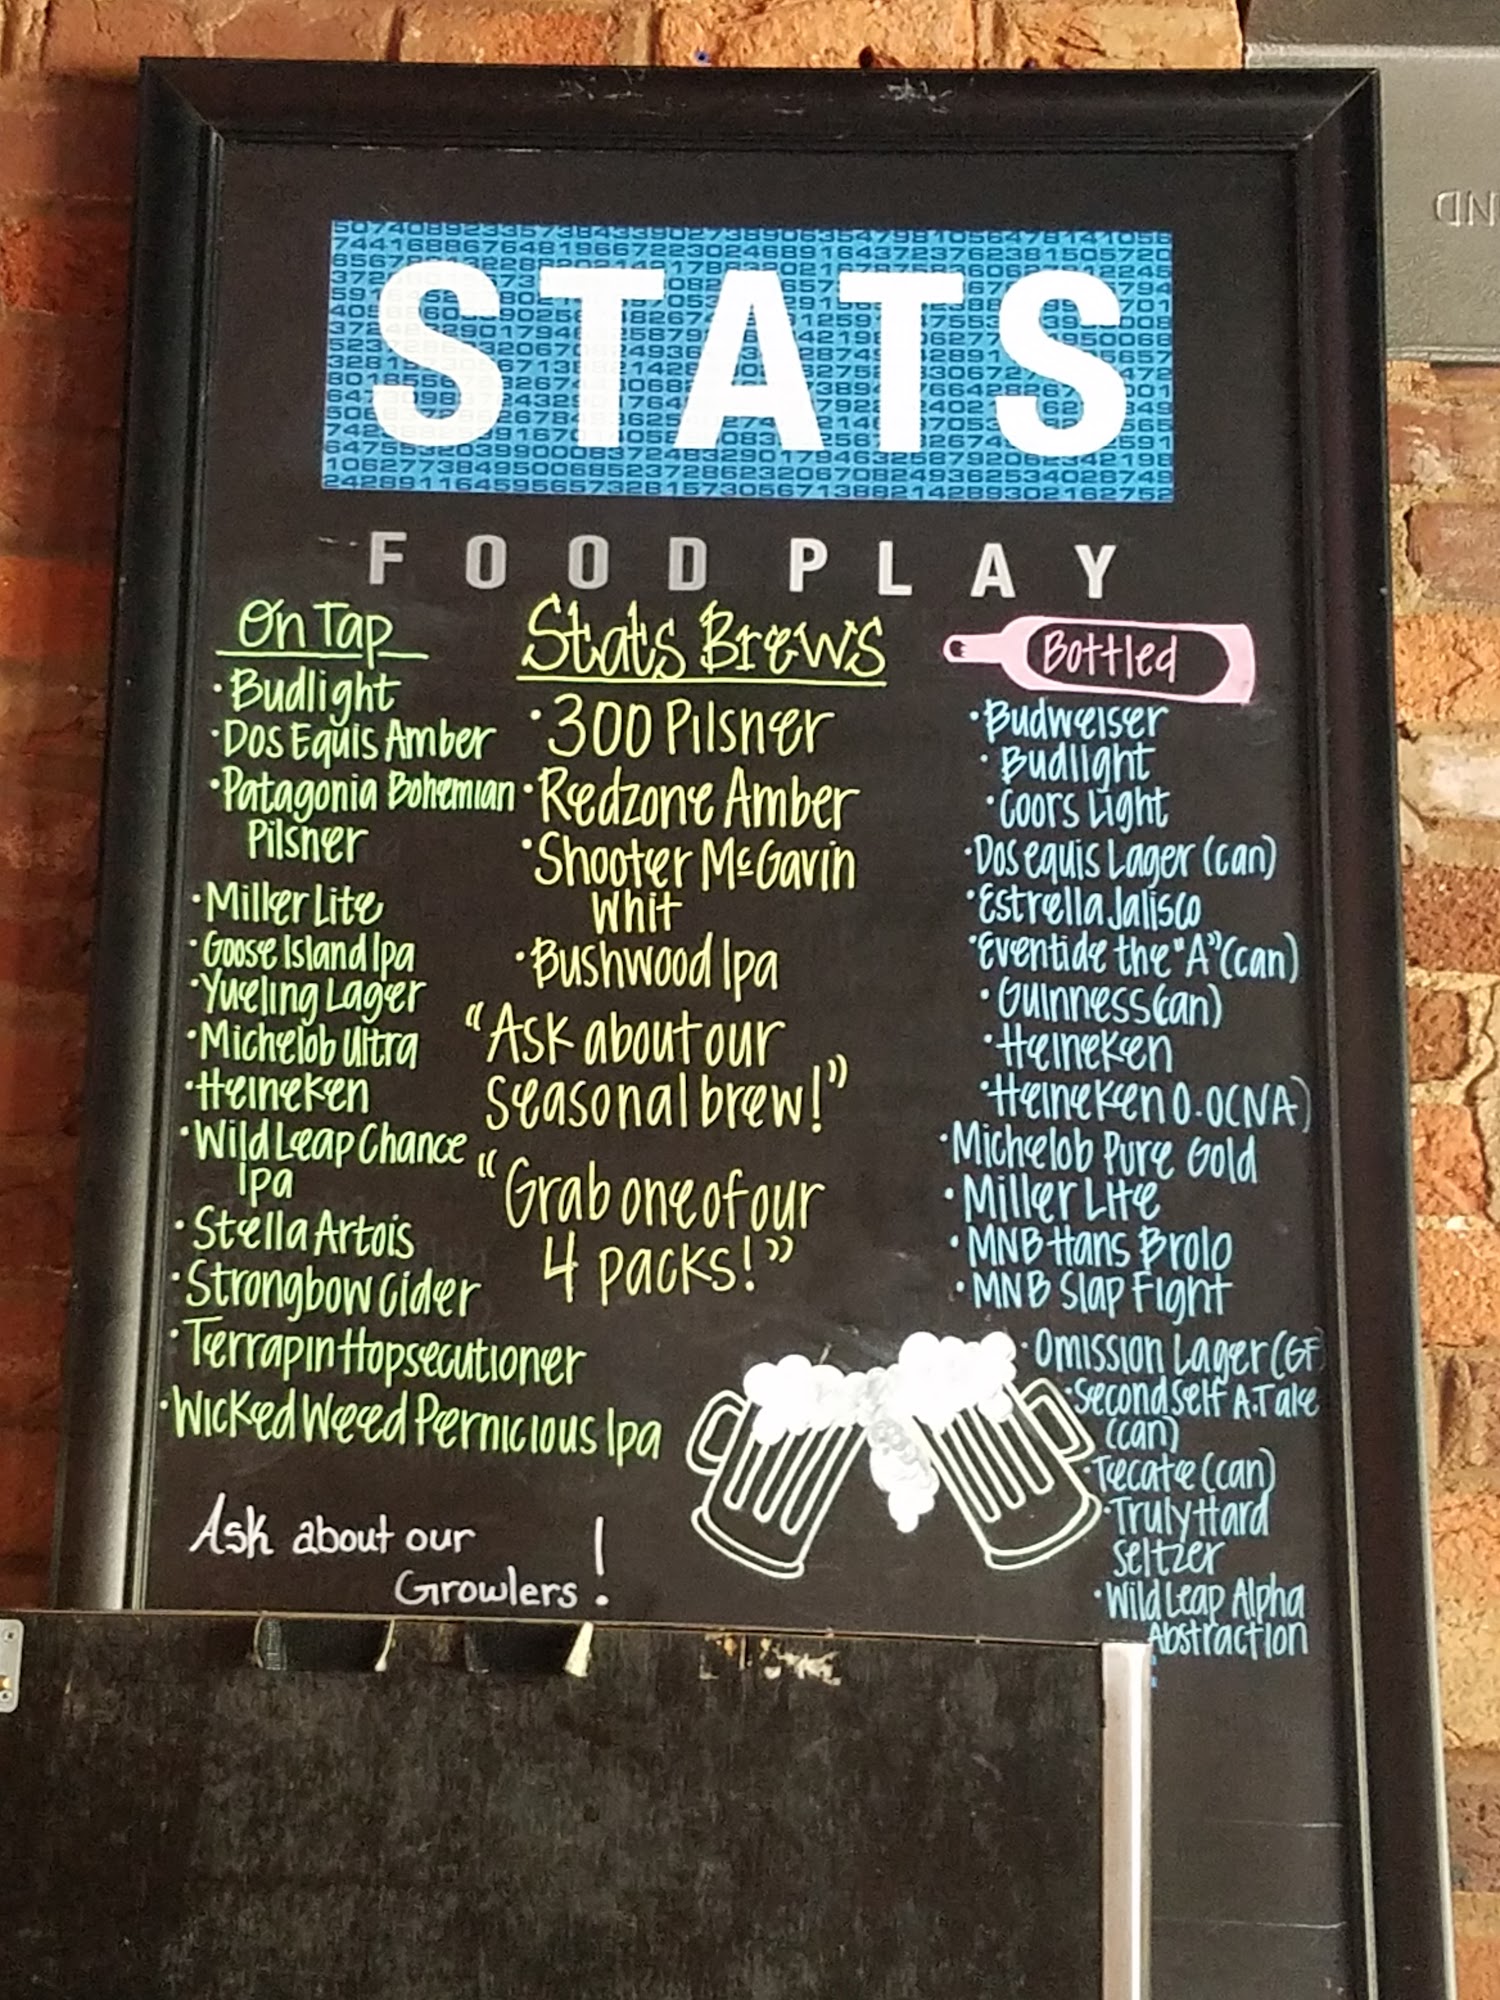 STATS
FOOD PLAY
On Tap
·Budlight
·Dos Equis Amber
·Patagonia Bohemian
Pilsner
·Miller Lite
·Goose Island Ipa
·Yueling Lager
·Michelob Ultra
·Heineken
·Wild Leap Chance
Ipa
·Stella Artois
·Strongbow Cider
·Terrapin Hopsecutioner
·Wicked Weed Pernicious Ipa
Ask about our
Growlers!
Stats Brews
·300 Pilsner
·Redzone Amber
·Shooter McGavin
Whit
·Bushwood Ipa
"Ask about our
seasonal brew!"
"Grab one of our
4 packs!"
Bottled
·Budweiser
·Budlight
·Coors Light
·Dos equis Lager (can)
·Estrella Jalisco
·Eventide the "A" (can)
·Guinness (can)
·Heineken
·Heineken 0.0 (NA)
·Michelob Pure Gold
·Miller Lite
·MNB Hans Brolo
·MNB Slap Fight
·Omission Lager (GF)
·Second Self A.Take
(can)
·Tecate (can)
·Truly Hard
Seltzer
·Wild Leap Alpha
Abstraction